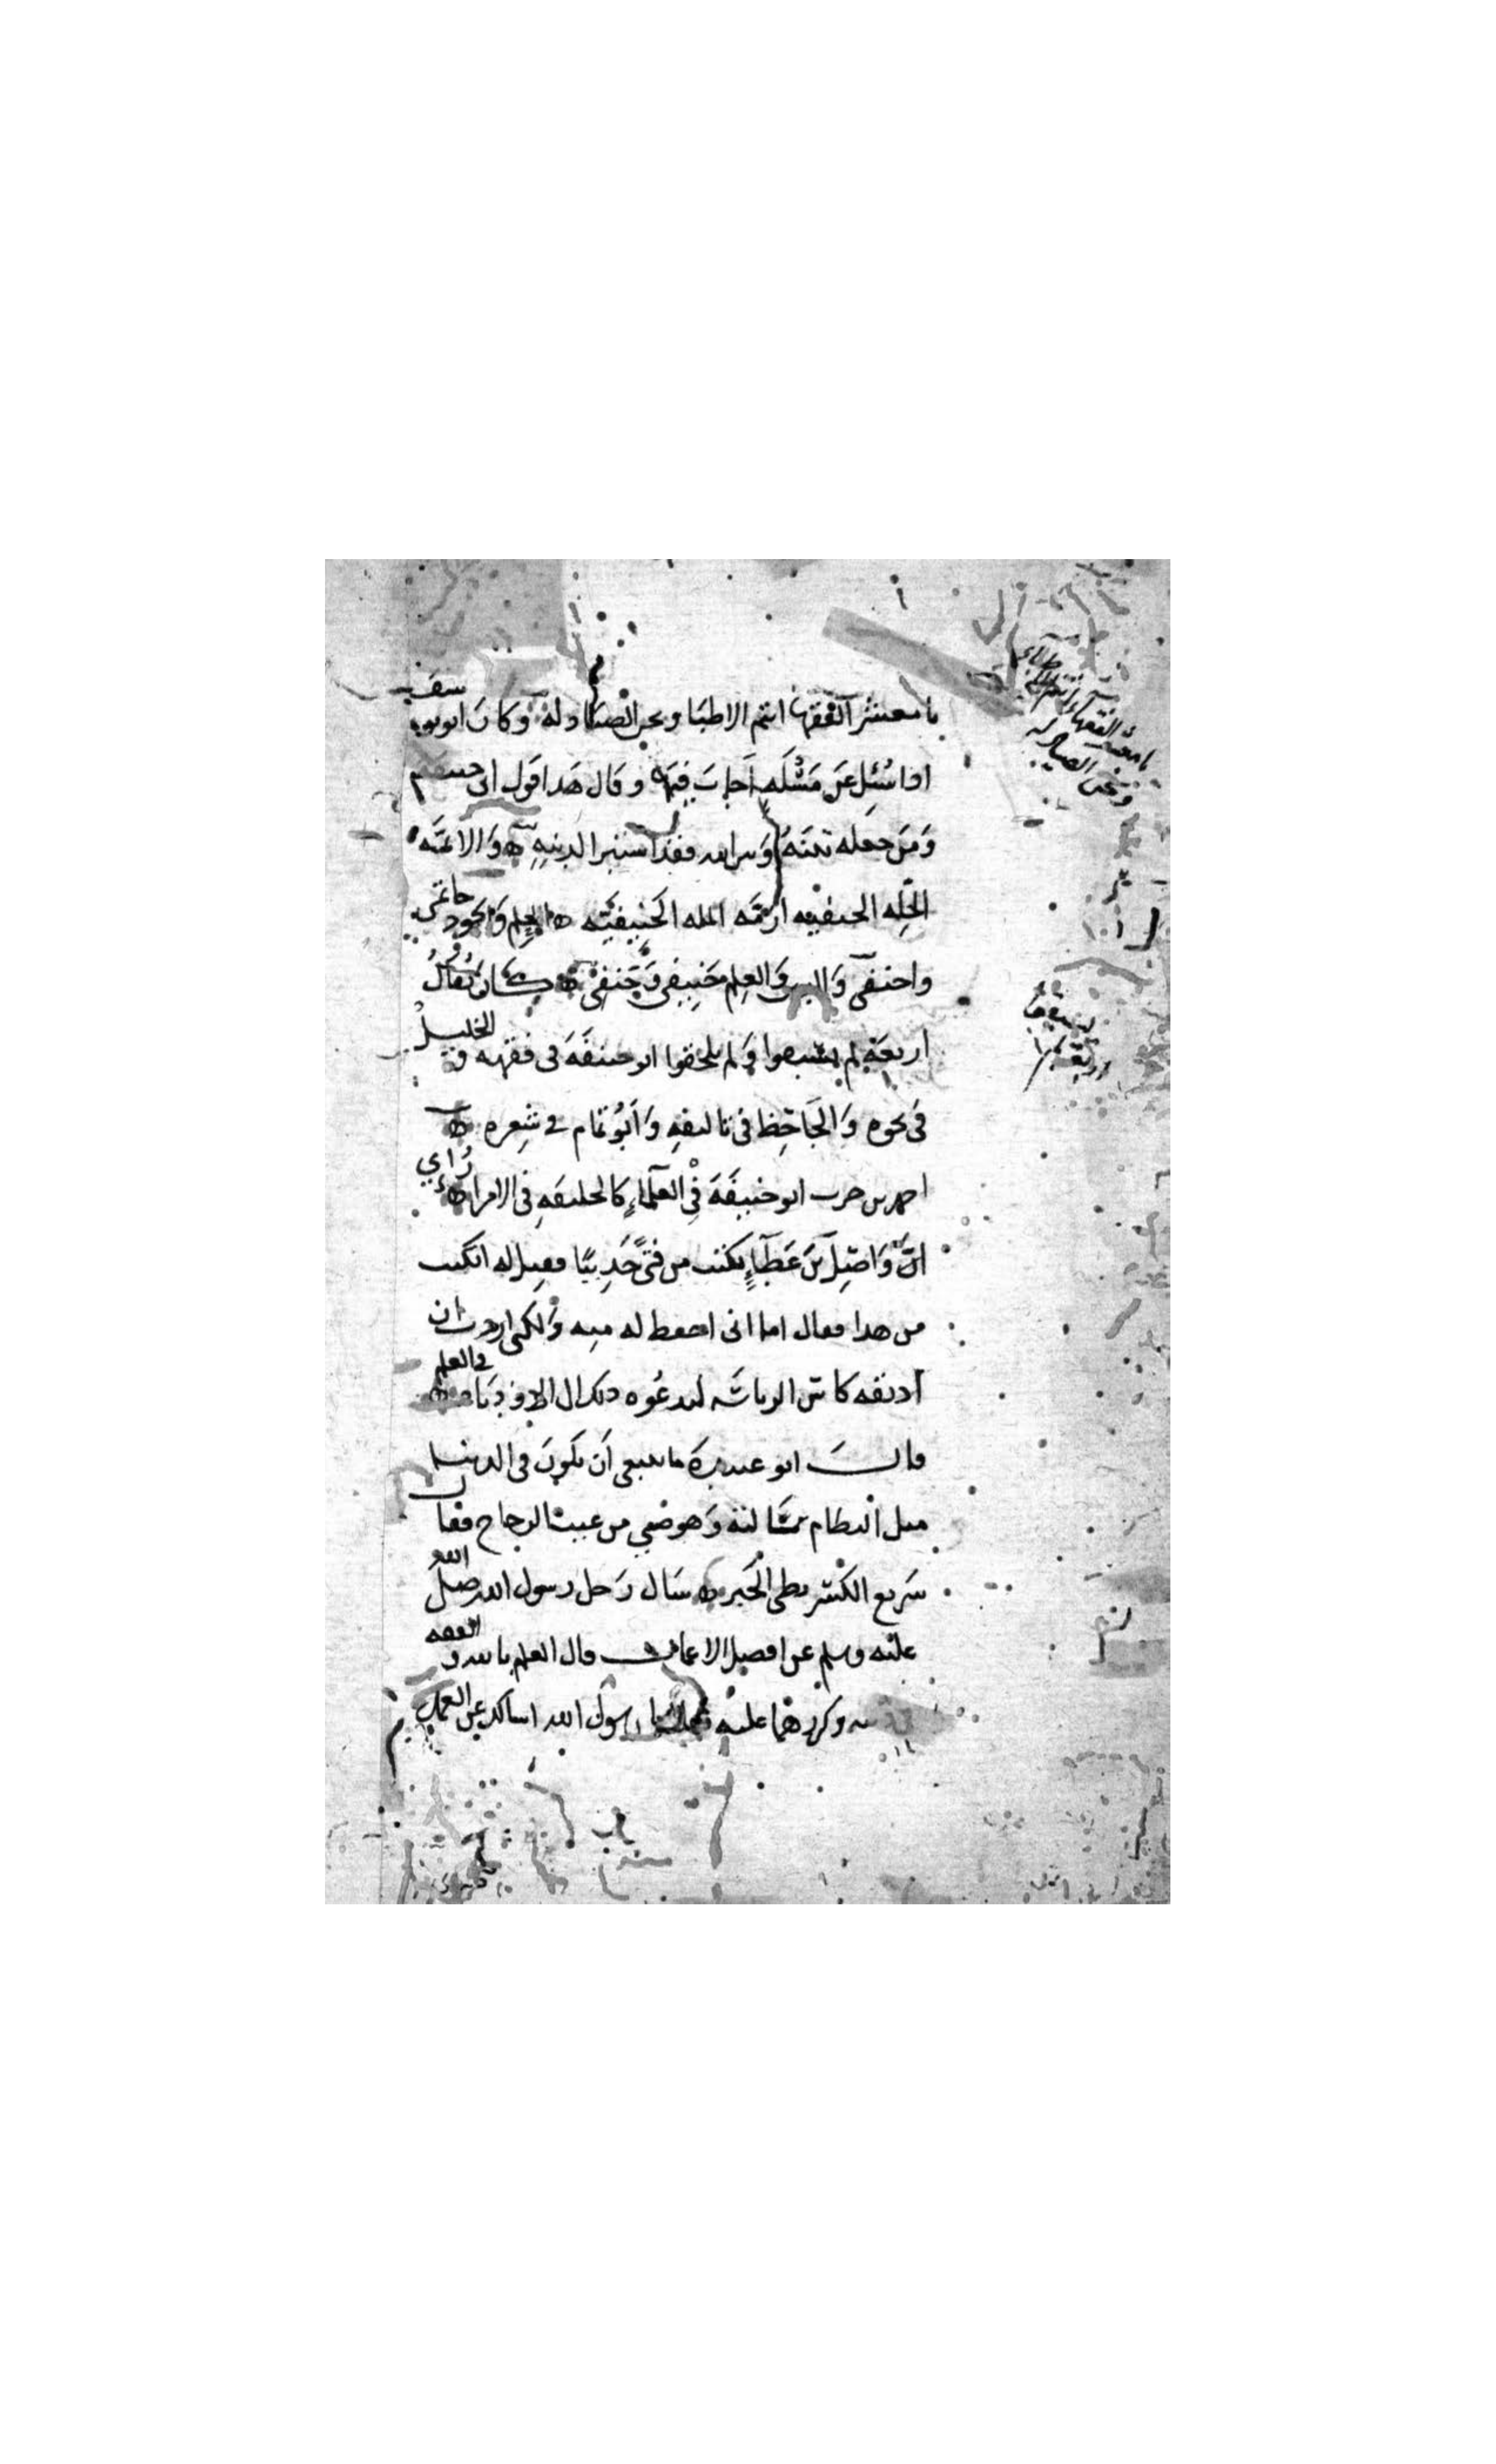 يا معشر الفقهاء انتم الاطبا ونحن الصيادلة وكان ابو يوسف
اذا سُئِل عن مَسْئلَه أجابَ فيها وقال هذا قول ابى حنيفه
وَمَن جعله بينَهُ وبين الله فقد استبرا لدينِهِ ه وَالائمّه
الجِلّه الحنفيه ازِمّه المله الحَنيفيّه ه الحلم وَالجود حاتمي
واحنفي وَالدين وَالعِلم حَنيفى وَحَنفى ه كان يُقالُ
اربعَة لم يسبقوا وَلم يلحقوا ابو حنيفَةَ فى فقهه وَالخليلُ
فى نحوه وَالجَاحِظ فى تاليفِهِ وَأَبُو تمام في شِعِره ه
احمد بن حرب ابو حنيفَةَ فِى العلماءِ كالخليفه فى الامراء ه رُاي
انّ وَاصِلَ بنَ عَطَاءٍ يكتب من فتًى حَدِيثًا فقيل له اتكتب
من هذا فقال اما انى احفظ له منه وَلكنى اردت ان
أذيقه كاس الرياسَه ليدعُوه ذلك الى الازديَاد في العلم
قال ابو عبيدة ما ينبغي أن يكون فى الدنيا
مثل النظام سَالته وَهو صبي من عيب الزجاج فقال
سَريع الكسر بطى الجَبر ه سَال رَجل رسول الله صلى الله
عليه وسلم عن افضل الاعمال قال العلم بالله والفقه
فى دينه وكررهما عليه فقال يا رسول الله اسالك عن العمل
يا معشر الفقهاء انتم الاطباء
ونحن الصيادلة